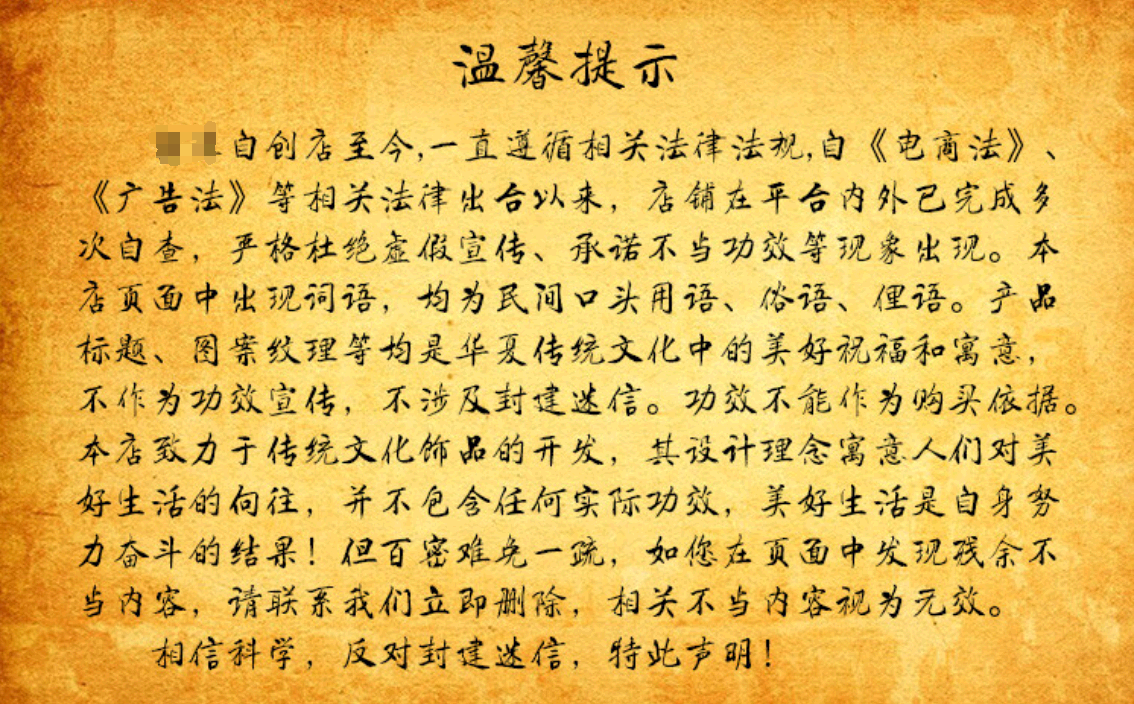 温馨提示
自创店至今,一直遵循相关法律法规,自《电商法》、
《广告法》等相关法律出台以来，店铺在平台内外已完成多
次自查，严格杜绝虚假宣传、承诺不当功效等现象出现。本
店页面中出现词语，均为民间口头用语、俗语、俚语。产品
标题、图案纹理等均是华夏传统文化中的美好祝福和寓意，
不作为功效宣传，不涉及封建迷信。功效不能作为购买依据。
本店致力于传统文化饰品的开发，其设计理念寓意人们对美
好生活的向往，并不包含任何实际功效，美好生活是自身努
力奋斗的结果！但百密难免一疏，如您在页面中发现残余不
当内容，请联系我们立即删除，相关不当内容视为无效。
相信科学，反对封建迷信，特此声明！